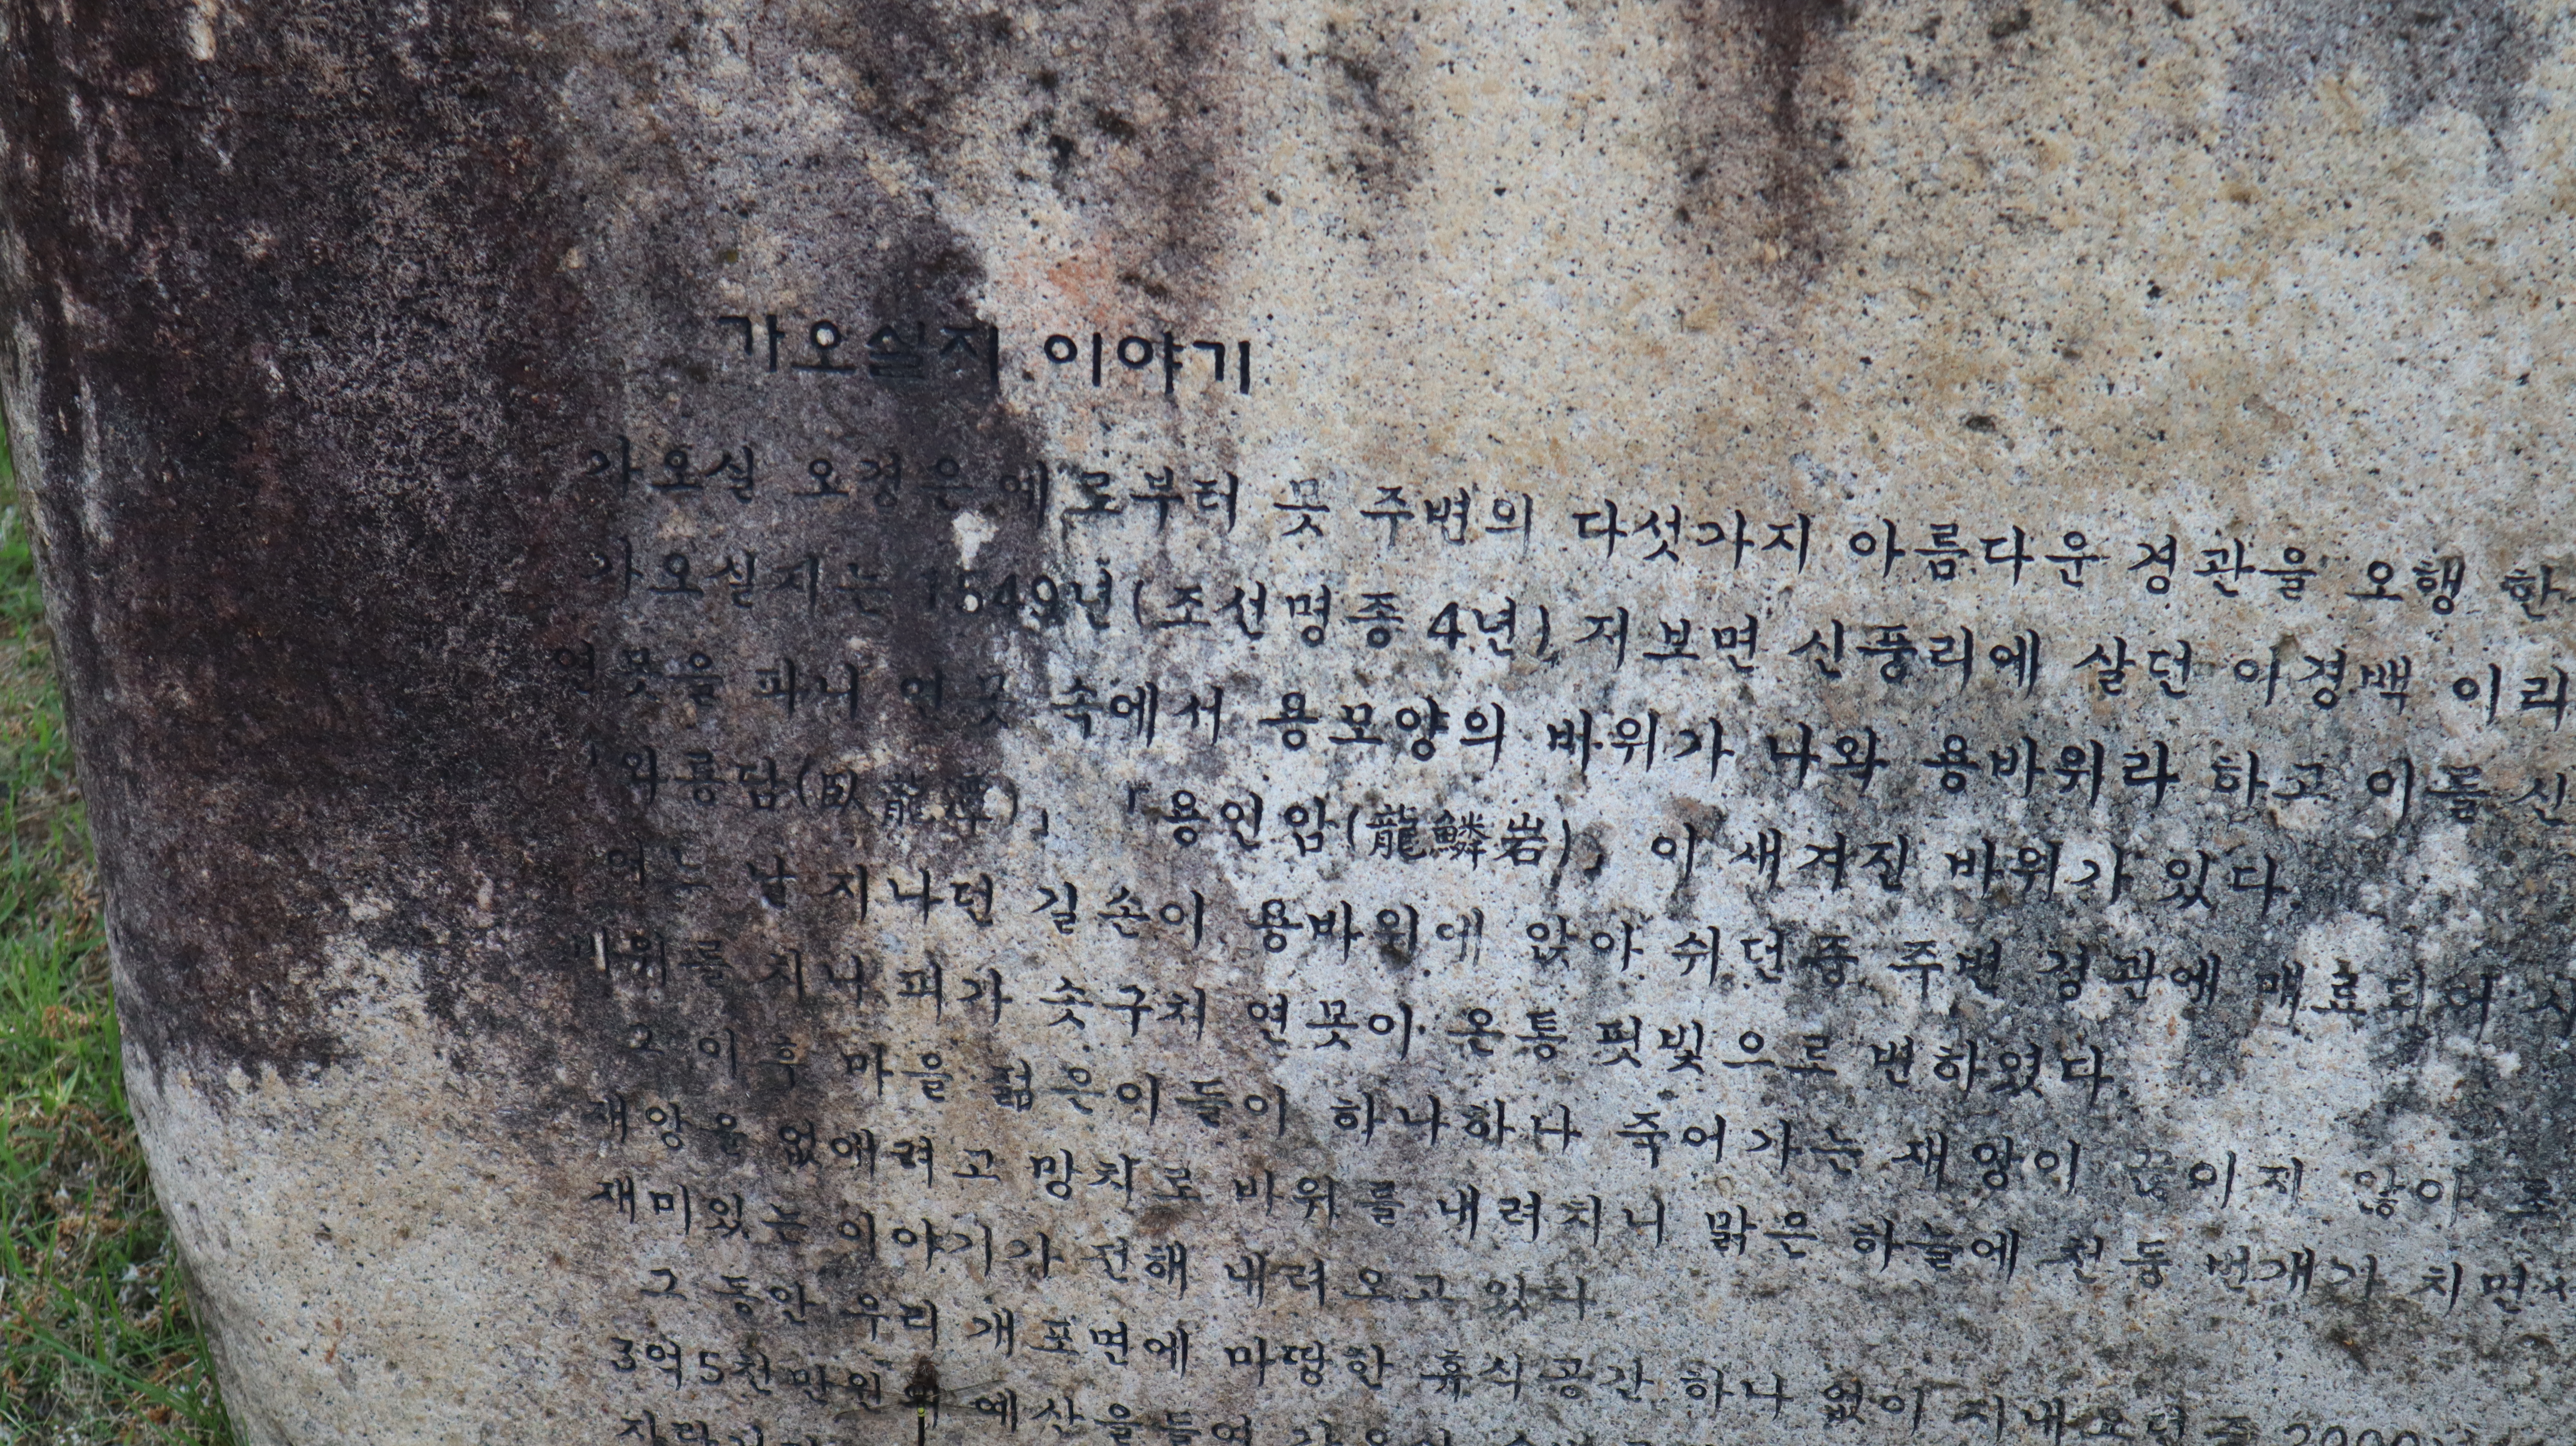 가오실지 이야기
가오실 오경은 예로부터 못 주변의 다섯가지 아름다운 경관을 오행 한
가오실지는 1549년(조선명종 4년) 저보면 신풍리에 살던 이경백 이라
연못을 파니 연못 속에서 용모양의 바위가 나와 용바위라 하고 이를 신
「와룡담(臥龍潭)」 「용인암(龍鱗岩)」 이 새겨진 바위가 있다.
어느 날 지나던 길손이 용바위에 앉아 쉬던중 주변 경관에 매료되어
바위를 치니 피가 솟구쳐 연못이 온통 핏빛으로 변하였다.
그 이후 마을 젊은이들이 하나하나 죽어가는 재앙이 끊이지 않아
재앙을 없애려고 망치로 바위를 내려치니 맑은 하늘에 천둥 번개가 치면서
재미있는 이야기가 전해 내려오고 있다
그 동안 우리 개포면에 마땅한 휴식공간 하나 없이 지내오던 중 2000
3억5천만원의 예산을들여